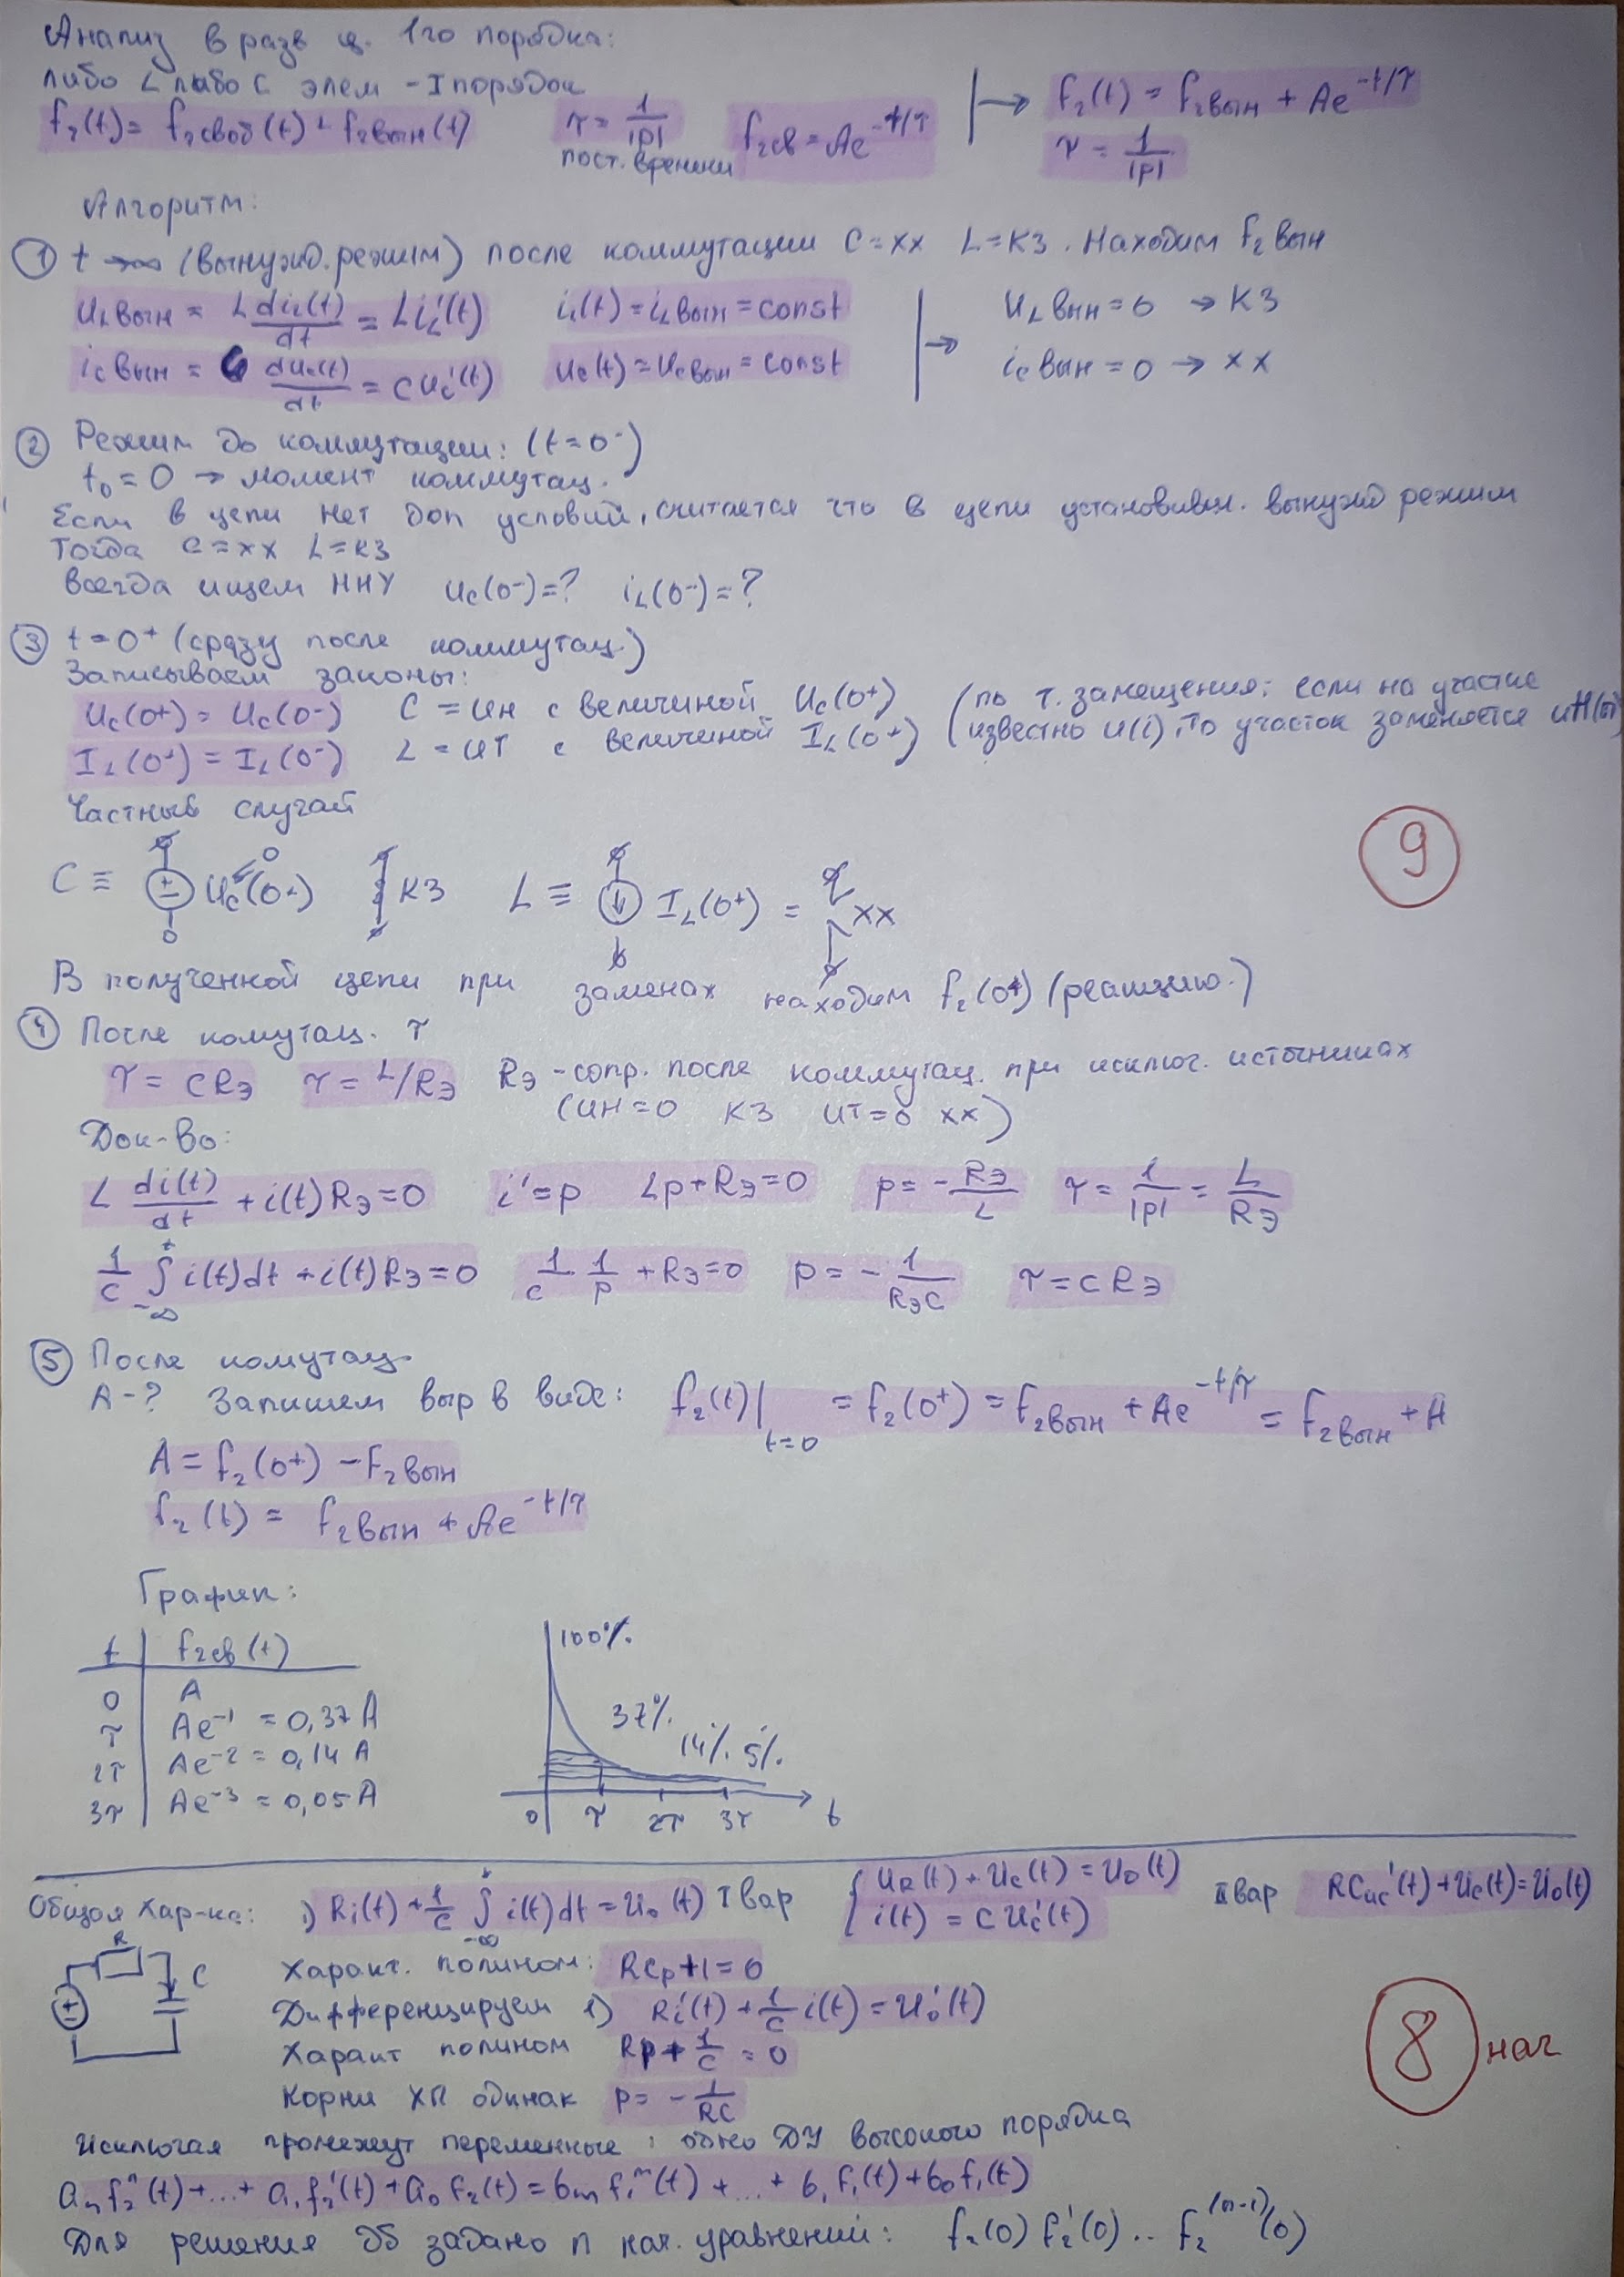 Анализ в разв ц. 1го порядка:
либо L либо C элем - I порядок
f₂(t) = f₂своб(t) + f₂вын(t) τ = 1/|p| f₂св = Ae^(-t/τ) → f₂(t) = f₂вын + Ae^(-t/τ)
пост. времени τ = 1/|p|
Алгоритм:
① t → ∞ (вынужд. режим) после коммутации C = xx L = КЗ. Находим f₂вын
u_L вын = L di_L(t)/dt = L i_L'(t) i_L(t) = i_L вын = const → u_L вын = 0 → КЗ
i_C вын = C du_C(t)/dt = C u_C'(t) u_C(t) = u_C вын = const i_C вын = 0 → xx
② Режим до коммутации: (t = 0⁻)
t₀ = 0 → момент коммутац.
Если в цепи нет доп условий, считается что в цепи установивш. вынужд режим
Тогда C = xx L = КЗ
Всегда ищем ННУ u_C(0⁻) = ? i_L(0⁻) = ?
③ t = 0⁺ (сразу после коммутац.)
Записываем законы:
U_C(0⁺) = U_C(0⁻) C = ИН с величиной U_C(0⁺) (по т. замещения: если на участке
I_L(0⁺) = I_L(0⁻) L = ИТ с величиной I_L(0⁺) (известно u(i), то участок заменяется ИН
Частный случай
C ≡ U_C(0+) 0 КЗ L ≡ I_L(0⁺) = xx
⑨
В полученной цепи при заменах находим f₂(0⁺) (реакцию.)
④ После комутац. τ
τ = CRэ τ = L/Rэ Rэ - сопр. после коммутац. при исключ. источниках
(ИН = 0 КЗ ИТ = 0 xx)
Док-во:
L di(t)/dt + i(t)Rэ = 0 i' = p Lp + Rэ = 0 p = - Rэ/L τ = 1/|p| = L/Rэ
1/C ∫_{-∞}^{t} i(t)dt + i(t)Rэ = 0 1/C 1/p + Rэ = 0 p = - 1/(RэC) τ = CRэ
⑤ После комутац.
A - ? Запишем выр в виде: f₂(t)|_{t=0} = f₂(0⁺) = f₂вын + Ae^(-t/τ) = f₂вын + A
A = f₂(0⁺) - f₂вын
f₂(t) = f₂вын + Ae^(-t/τ)
График:
t f₂св(t)
0 A
τ Ae⁻¹ = 0,37 A
2τ Ae⁻² = 0,14 A
3τ Ae⁻³ = 0,05 A
100%
37%
14% 5%
0 τ 2τ 3τ t
Общая хар-ка: 1) Ri(t) + 1/C ∫_{-∞}^{t} i(t)dt = U₀(t) I вар { U_R(t) + U_C(t) = U₀(t) II вар RCu_C'(t) + U_C(t) = U₀(t)
i(t) = C U_C'(t)
R C
Характ. полином: RCp + 1 = 0
Дифференцируем 1) Ri'(t) + 1/C i(t) = U₀'(t)
Характ полином Rp + 1/C = 0
Корни ХП одинак p = - 1/RC
⑧ нач
Исключая промежут переменные: одно ДУ высокого порядка
aₙf₂ⁿ(t) + ... + a₁f₂'(t) + a₀f₂(t) = bₘf₁ᵐ(t) + ... + b₁f₁(t) + b₀f₁(t)
Для решения дб задано n нач. уравнений: f₂(0) f₂'(0) .. f₂^(n-1)(0)